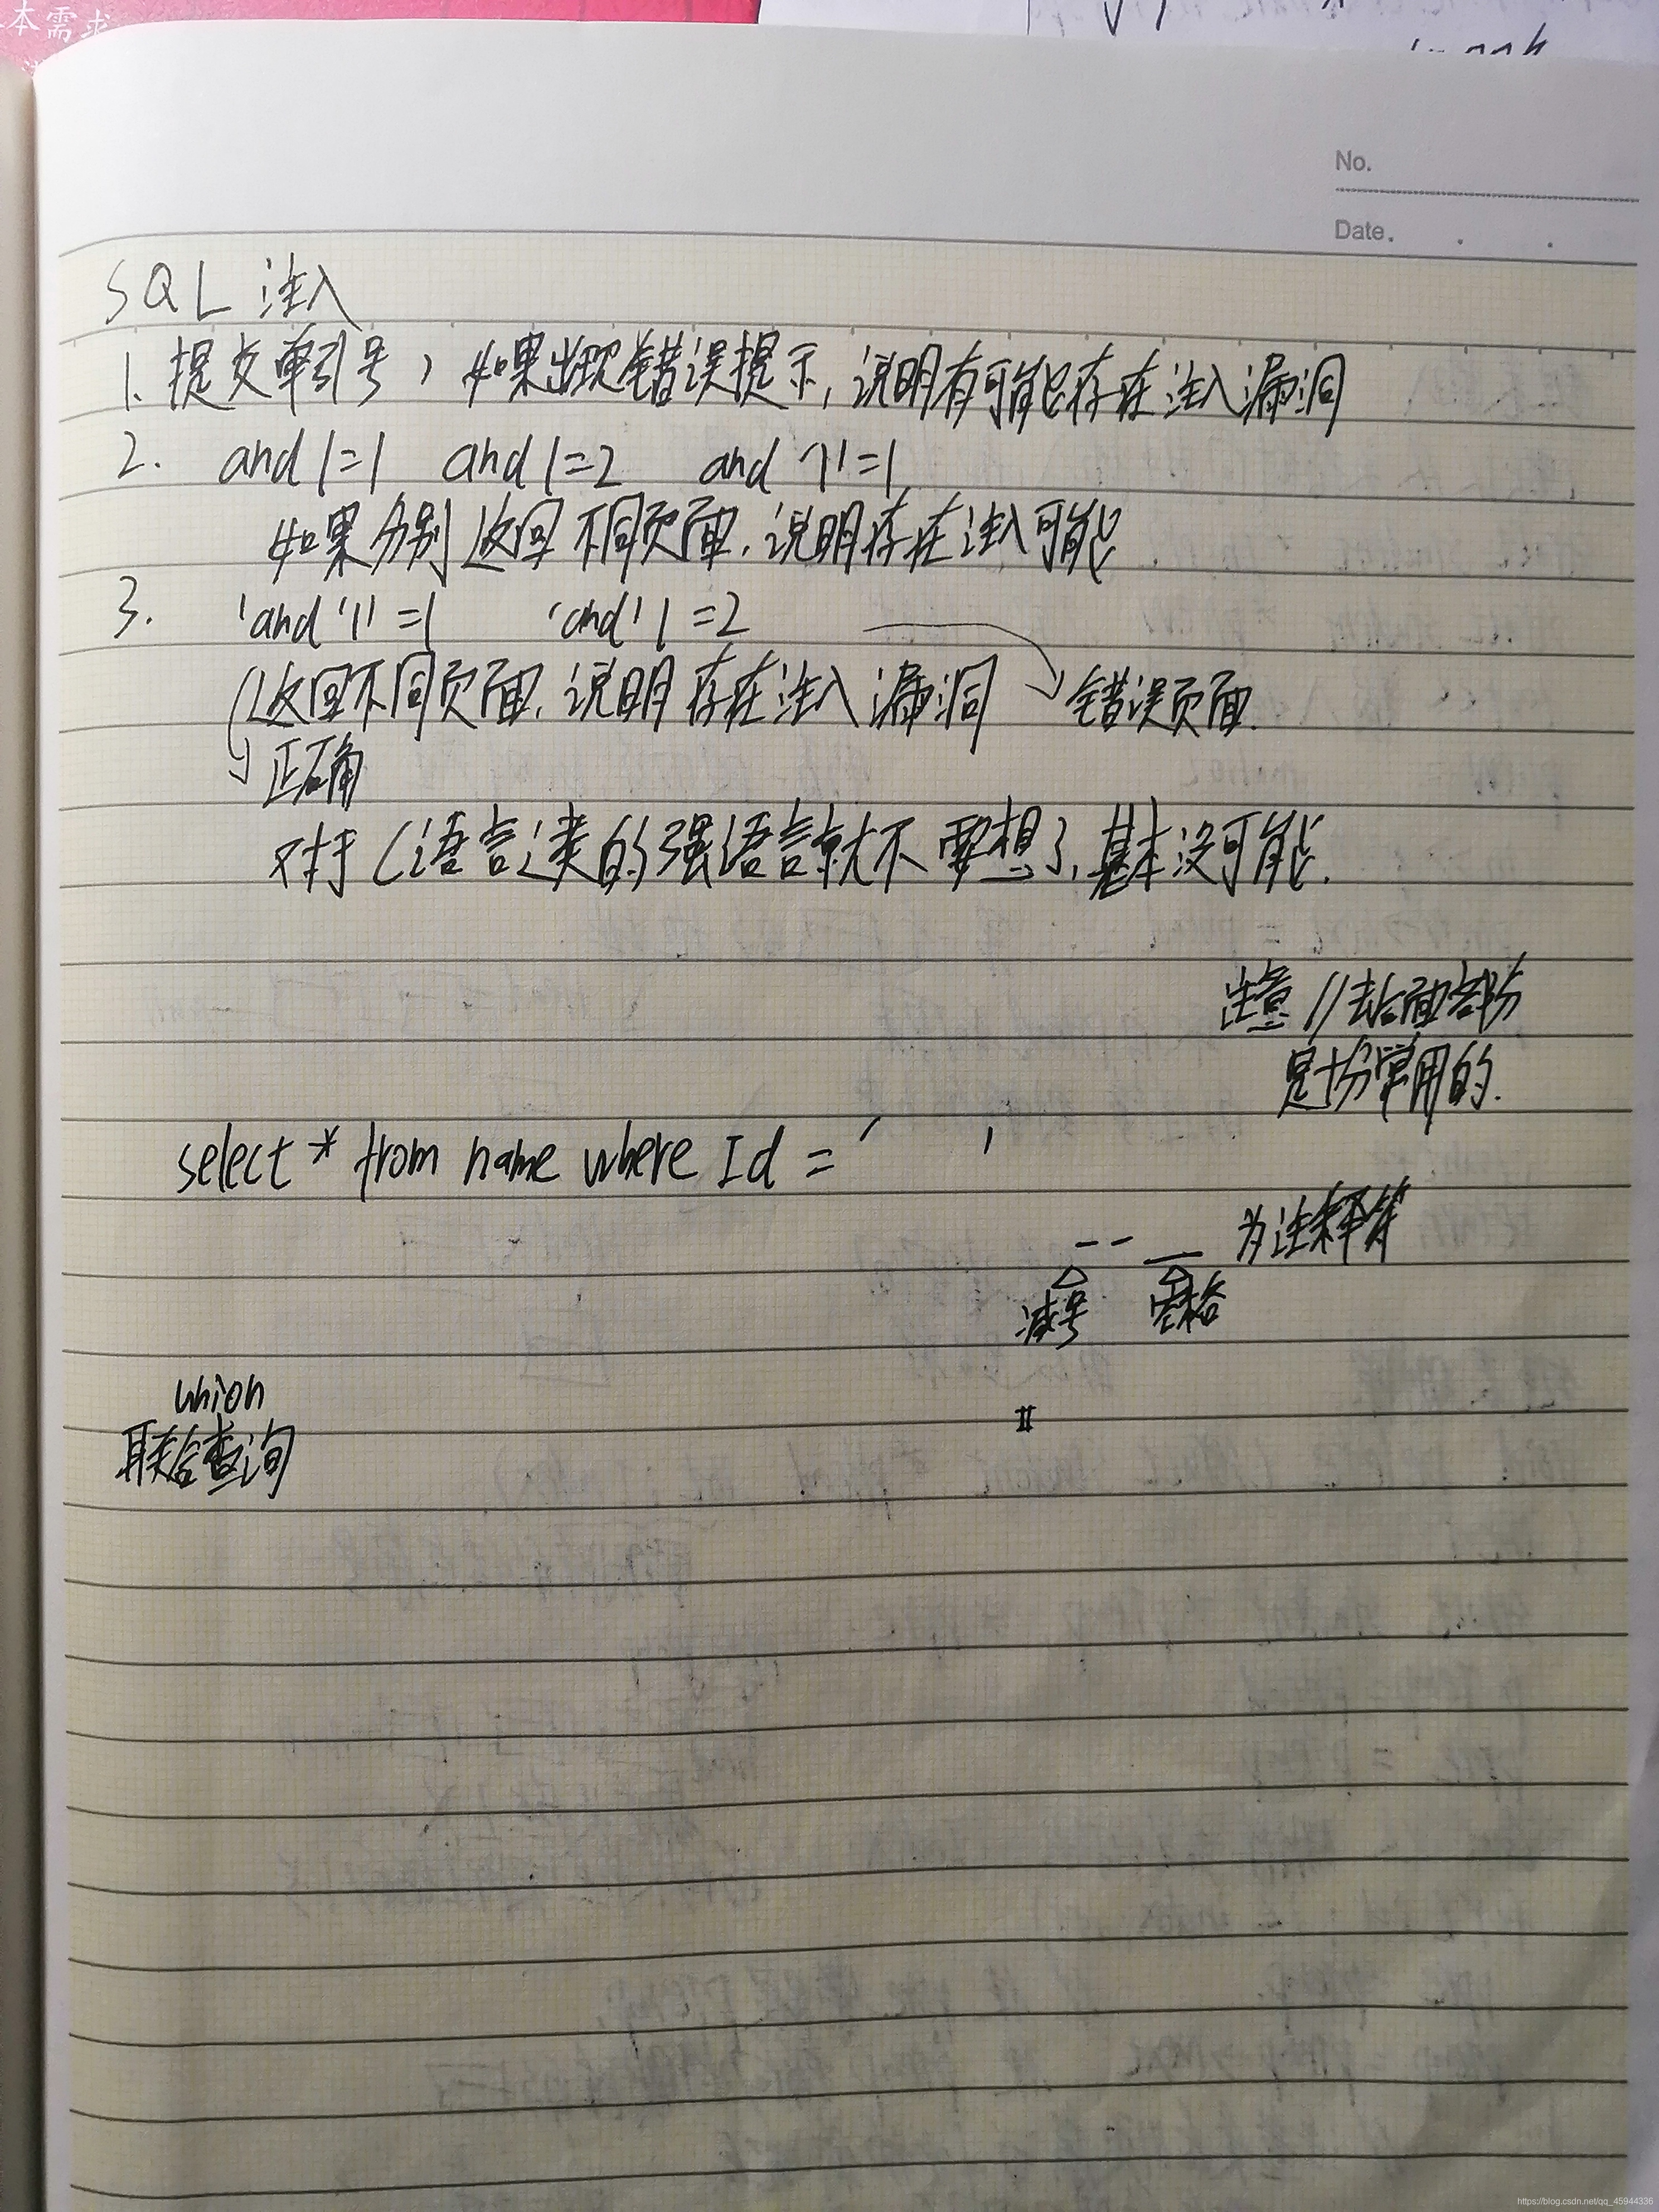 本需求
No.
Date.
SQL 注入
1. 提交单引号，如果出现错误提示，说明有可能存在注入漏洞
2. and 1=1 and 1=2 and '1'=1
如果分别返回不同页面，说明存在注入可能
3. 'and '1' =1 'and' 1 =2
返回不同页面，说明存在注入漏洞 错误页面.
正确
对于C语言类的强语言就不要想了，基本没可能.
注意 //去后面部分
是十分常用的.
select * from name where Id = ' '
-- __ 为注释符
减号 空格
union
联合查询
https://blog.csdn.net/qq_45944336